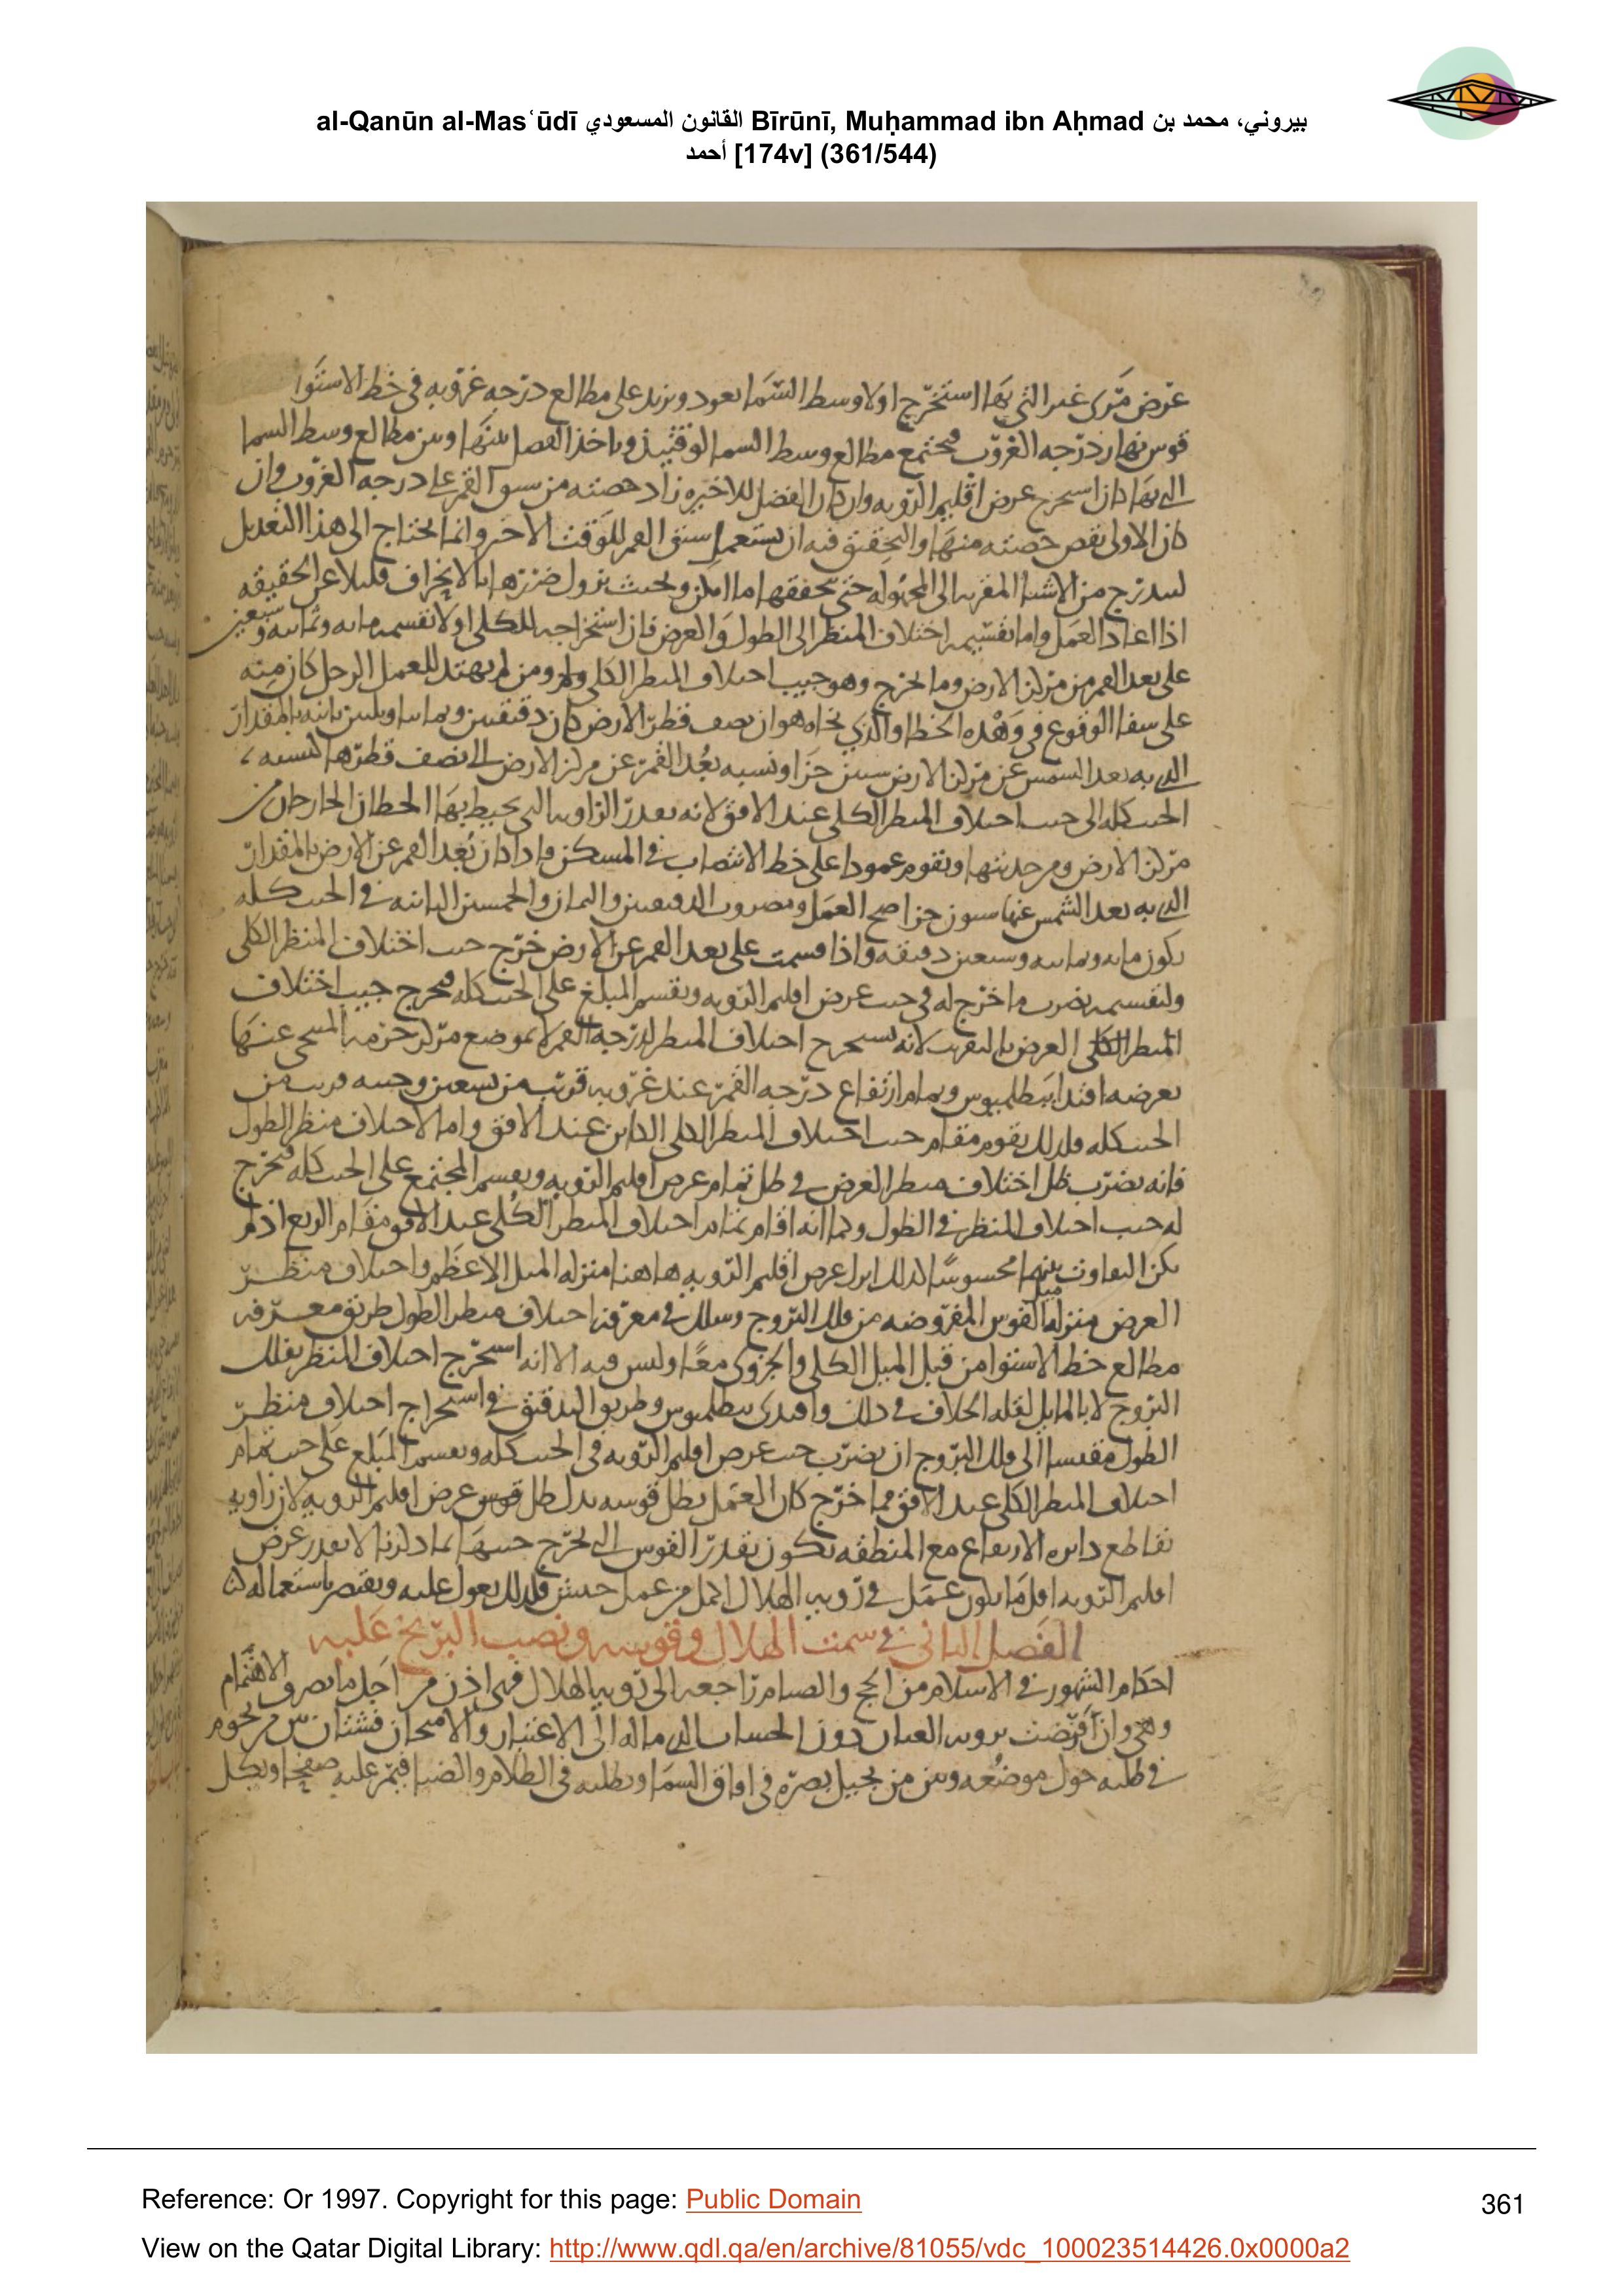 al-Qanūn al-Masʿūdī القانون المسعودي Bīrūnī, Muḥammad ibn Aḥmad بيروني، محمد بن
أحمد [174v] (361/544)
عرض مرى غير التي بها استخرج اولا وسط السما يعود ويزيد على مطالع درجه غروبه في خط الاستوا
قوس نهار درجه الغروب فيجتمع مطالع وسط السما الوقتيذ وياخذ الفصل بينها وبين مطالع وسط السما
التي بها كان استخرج عرض اقليم الرويه وان كان الفضل للاخيره زاد حصته من سبق القمر على درجه الغروب وان
كان الاولى نقص حصته منها والتحقيق فيه ان يستعمل سبق القمر للوقت الاخر وانما يحتاج الى هذا التعديل
ليتدرج من الاشيا المقربه الى المجهوله حتى يحققها ما امكن وبحيث يزول ضررها بالانحراف قليلا عن الحقيقه
اذا اعاد العمل واما تقسيمه اختلاف المنظر الى الطول والعرض فان استخراجه للكلي اولا تقسيمه مايه وثمانيه وسبعين
على بعد القمر من مركز الارض وما يخرج وهو جيب اختلاف المنظر الكلي ومن لم يهتد للعمل الرجل كان منه
على شفا الوقوع في وهده الخطا والذي نحاه هو ان نصف قطر الارض كان دقيقتين وثمانيا وخمسين ثانيه بالمقدار
الذي به بعد الشمس عن مركز الارض ستين جزا ونسبه بعد القمر عن مركز الارض الى نصف قطرها كنسبه
الجيب كله الى جيب اختلاف المنظر الكلي عند الافق لانه بقدر الزاويه التي يحيط بها الخطان الخارجان من
مركز الارض ومن حدبتها ويقوم عمودا على خط الانتصاب في المسكن واذا كان بعد القمر عن الارض بالمقدار
الذي به بعد الشمس عنها ستون جزا صح العمل ومضروب الدقيقتين والثمان والخمسين الثانيه في الجيب كله
يكون مايه وثمانيه وسبعين دقيقه واذا قسمت على بعد القمر عن الارض خرج جيب اختلاف المنظر الكلي
ولتقسيمه يضرب ما خرج له في جيب عرض اقليم الرويه ويقسم المبلغ على الجيب كله فيخرج جيب اختلاف
المنظر الكلي العرض بالتقريب لانه يستخرج اختلاف المنظر لدرجه القمر لا لموضع مركز جرمه المتنحي عنها
بعرضه اقتدا ببطلميوس وتمام ارتفاع درجه القمر عند غروبه قريب من تسعين وجيبه قريب من
الجيب كله فلذلك يقوم مقام جيب اختلاف المنظر الكلي الكاين عند الافق واما لاختلاف منظر الطول
فانه يضرب ظل اختلاف منظر العرض في ظل تمام عرض اقليم الرويه ويقسم المجتمع على الجيب كله فيخرج
له جيب اختلاف المنظر في الطول وكما انه اقام تمام اختلاف المنظر الكلي عند الافق مقام الربع اذ لم
يكن التفاوت بينهما محسوسا كذلك انزل عرض اقليم الرويه هاهنا منزله الميل الاعظم واختلاف منظر
العرض منزله ميل القوس المفروضه من فلك البروج وسلك في معرفه اختلاف منظر الطول طريق معرفه
مطالع خط الاستوا من قبل الميل الكلي والجزوى معا وليس فيه الا انه استخرج اختلاف المنظر بفلك
البروج لا بالمايل لقله الخلاف في ذلك واقتدى ببطلميوس وطريق التدقيق في استخراج اختلاف منظر
الطول مقيسا الى فلك البروج ان يضرب جيب عرض اقليم الرويه في الجيب كله ويقسم المبلغ على جيب تمام
اختلاف المنظر الكلي عند الافق فما خرج كان العمل بظل قوسه بدل ظل قوس عرض اقليم الرويه لان زاويه
تقاطع دايره الارتفاع مع المنطقه تكون بقدر القوس التي يخرج جيبها بما ذكرنا لا بقدر عرض
اقليم الرويه اقل ما يكون عمل في رويه الهلال اكمل من عمل حبش فلذلك يعول عليه ويقتصر باستعماله
الفصل الثاني في سمت الهلال وقوسه ونصب البربخ عليه
احكام الشهور في الاسلام من الحج والصيام راجعه الى رويه الهلال فهي اذن من اجل ما يصرف الاهتمام
وهي وان افرضت برويه العيان دون الحساب الذي ماله الى الاعتبار والامتحان فشتان بين من يحوم
في طلبه حول موضعه وبين من يجيل بصره في افاق السما ويطلبه في الظلام والضيا فيمر عليه صفحا ويكل
Reference: Or 1997. Copyright for this page: Public Domain
361
View on the Qatar Digital Library: http://www.qdl.qa/en/archive/81055/vdc_100023514426.0x0000a2